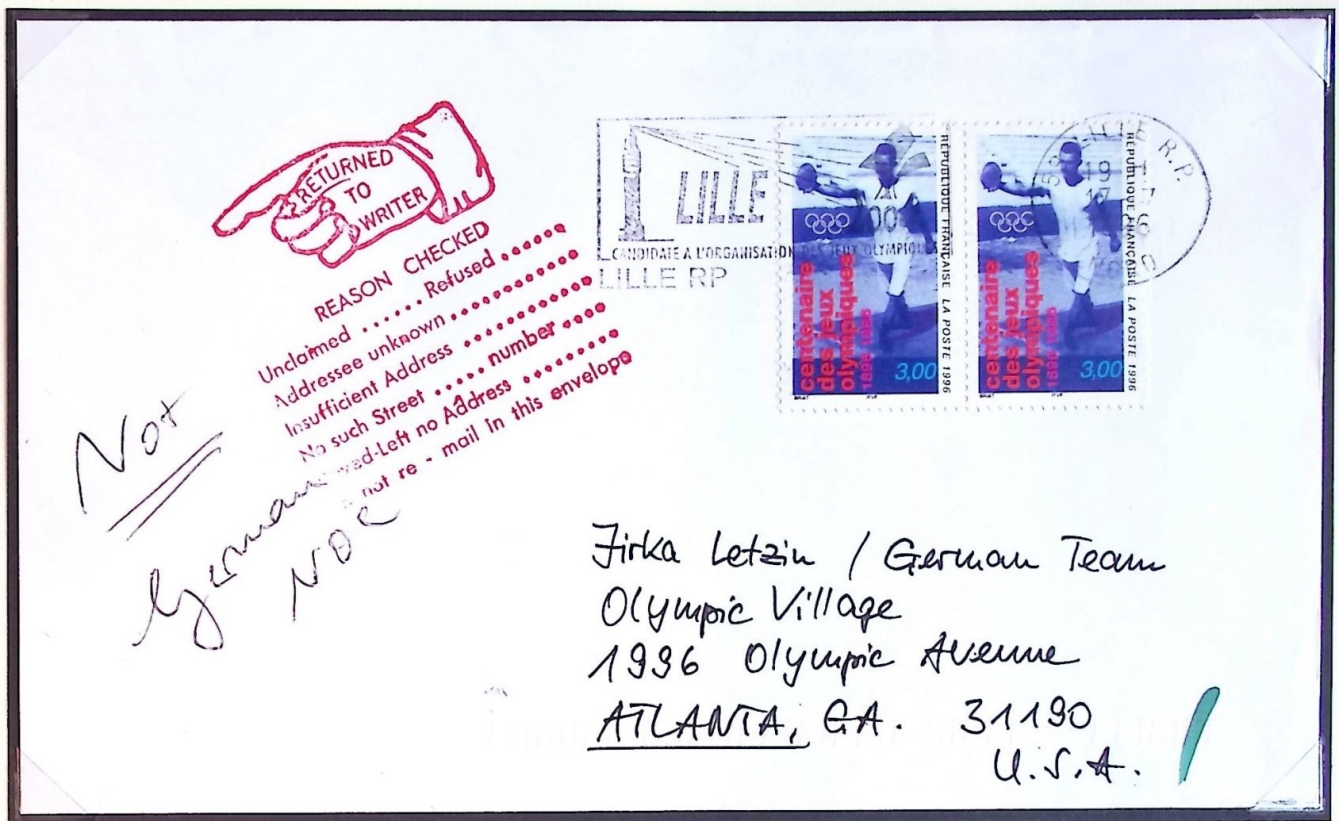 RETURNED
TO
WRITER
REASON CHECKED
Unclaimed ..... Refused ......
Addressee unknown ............
Insufficient Address ............
No such Street ..... number ....
ved-Left no Address .........
not re - mail in this envelope
Not
German
NOC
LILLE
CANDIDATE A L'ORGANISATION DES JEUX OLYMPIQUES
LILLE RP
RÉPUBLIQUE FRANÇAISE LA POSTE 1996
centenaire
des jeux
olympiques
1896 1996
3,00
RÉPUBLIQUE FRANÇAISE LA POSTE 1996
centenaire
des jeux
olympiques
1896 1996
3,00
59 LILLE R.P.
Jirka Letzin / German Team
Olympic Village
1996 Olympic Avenue
ATLANTA, GA. 31190
U.S.A.